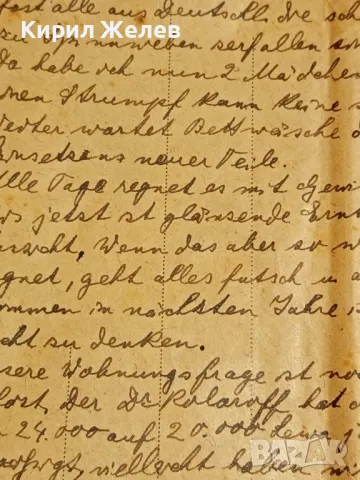 Кирил Желев
fast alle aus Deutschl. die sch
zu Spinnweben zerfallen sin
Da habe ich nun 2 Mädchen
nen Strumpf kann keine
wartet Bettwäsche
Einsetzens neuer Teile.
Alle Tage regnet es mit Gewi
jetzt ist glänzende Ernt
aussicht, wenn das aber so w
gnet, geht alles futsch u
ommen im nächsten Jahre is
cht zu denken.
sere Wohnungsfrage ist no
löst. Der Dr. Kolaroff hat
24.000 auf 20.000 Lewa
vielleicht haben wi
BAZAR